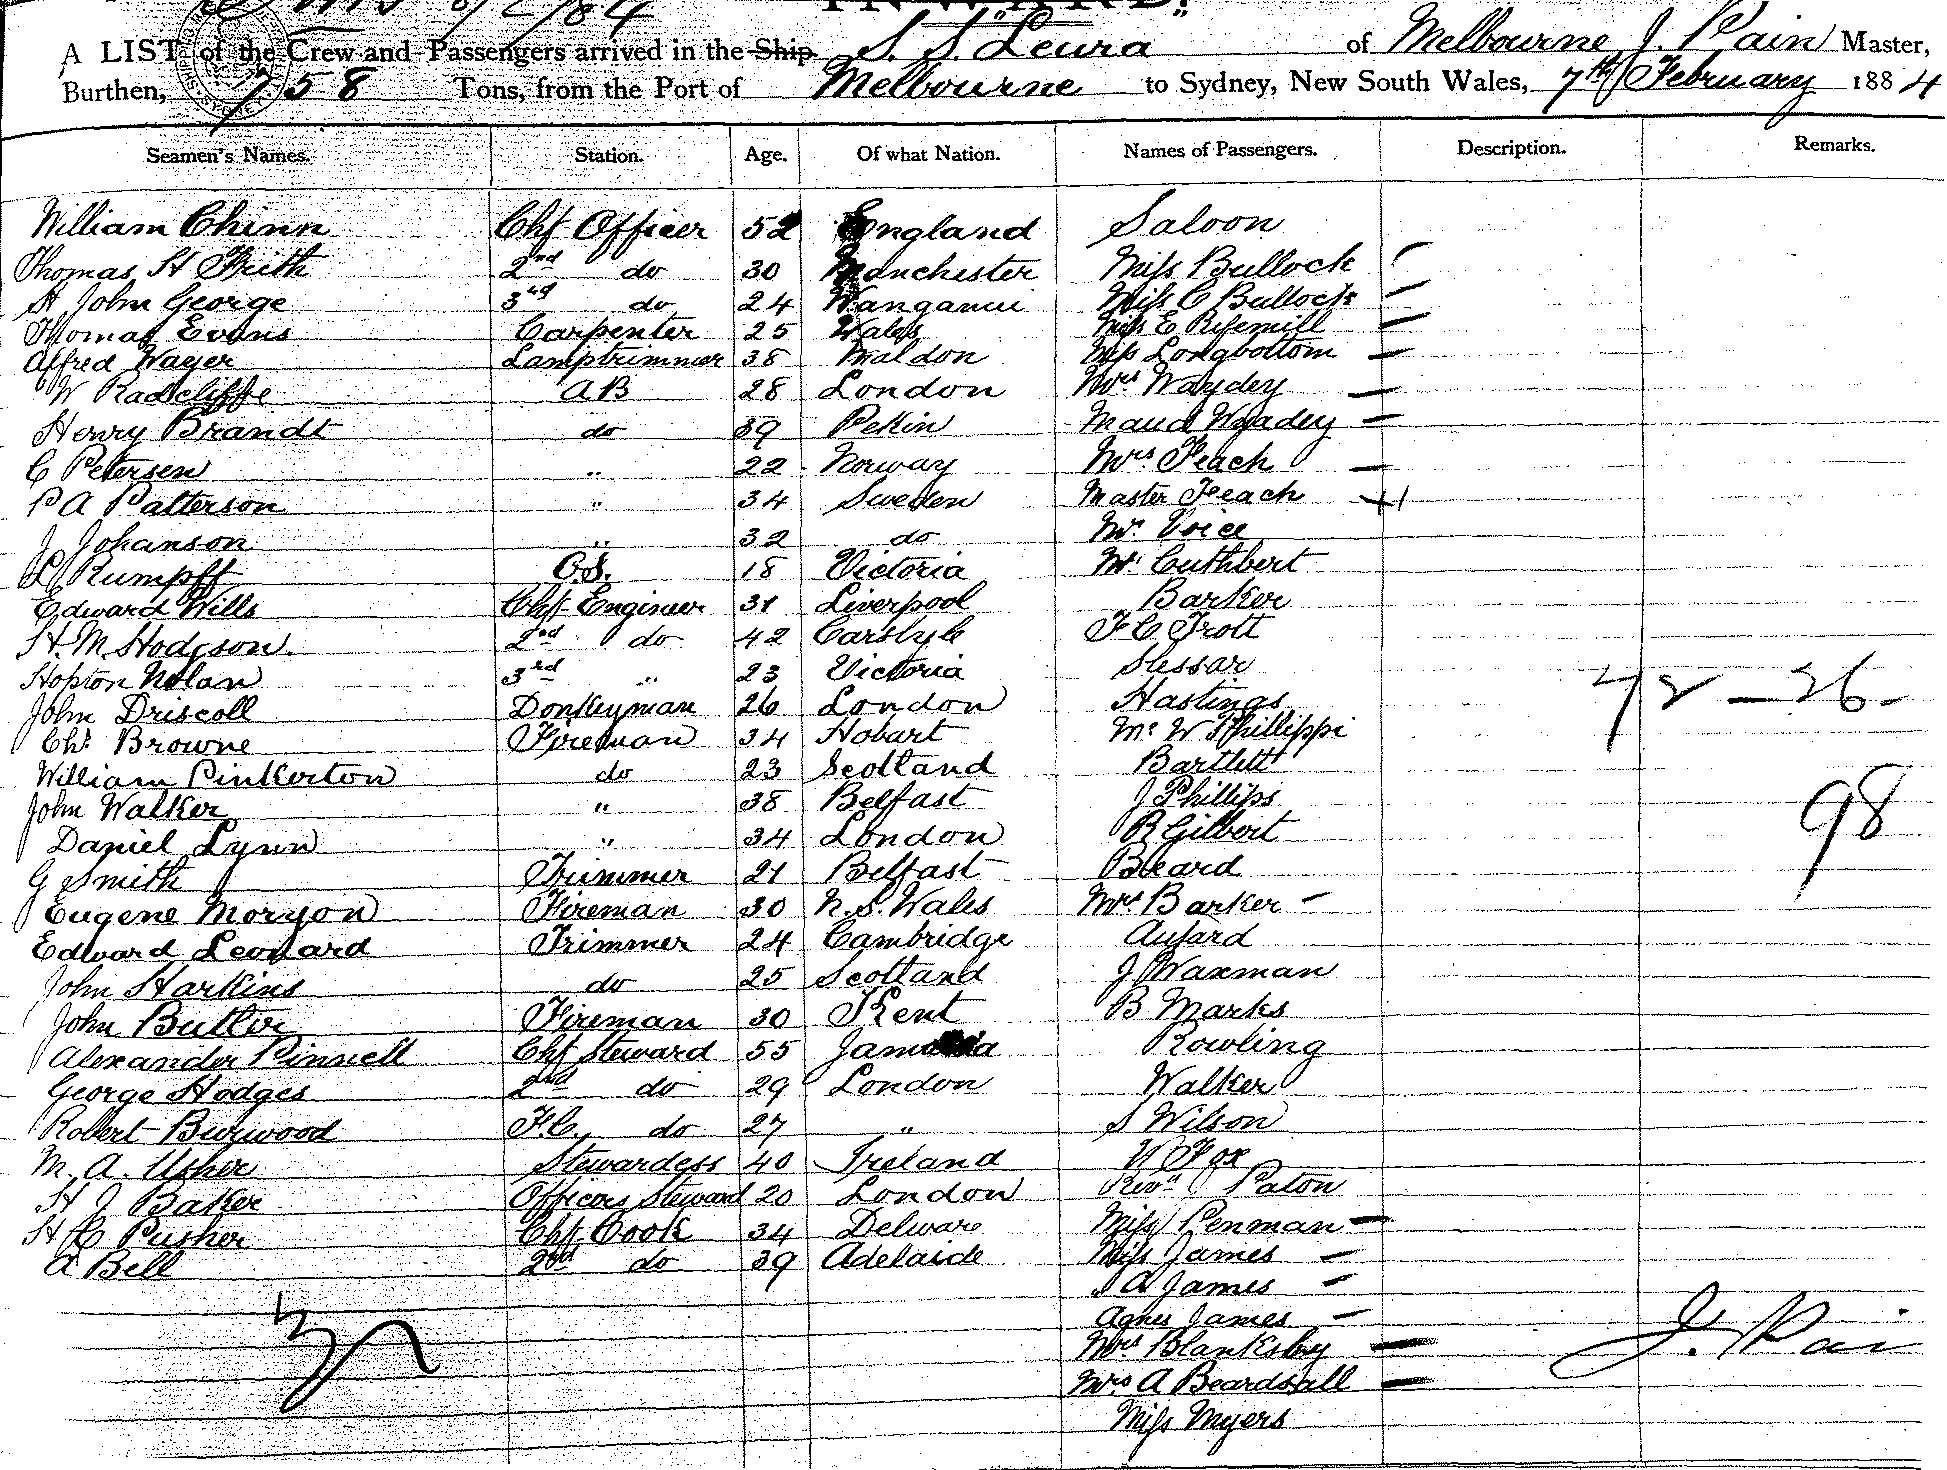 INWARD.
A LIST of the Crew and Passengers arrived in the Ship S. S. Leura of Melbourne J. Pain Master,
Burthen, 758 Tons, from the Port of Melbourne to Sydney, New South Wales, 7th February 1884
Seamen's Names. Station. Age. Of what Nation. Names of Passengers. Description. Remarks.
William Chinn Chf Officer 52 England Saloon
Thomas H Frith 2nd do 30 Manchester Miss Bullock
H John George 3rd do 24 Wanganui Miss C Bullock
Thomas Evans Carpenter 25 Wales Miss E
Alfred Wager Lamptrimmer 38 Maldon Miss Longbottom
W Radcliffe AB 28 London Mrs Waydey
Henry Brandt do 39 Pekin Maud Waydey
C Petersen " 22 Norway Mrs Peach
P A Patterson " 34 Sweden Master Peach
J Johanson " 32 do Mr Voice
L Rumpff O.S. 18 Victoria Mr Cuthbert
Edward Wills Chf Engineer 31 Liverpool Barker
H. M. Hodgson 2nd do 42 Carslyle F C Trott
Hopton Nolan 3rd " 23 Victoria Slessar
John Driscoll Donkeyman 26 London Hastings 72 - 26 -
Chs Browne Fireman 34 Hobart Mr W Phillippi
William Pinkerton do 23 Scotland Bartlett
John Walker " 38 Belfast J Phillips 98
Daniel Lynn " 34 London R Gilbert
G Smith Trimmer 21 Belfast Beard
Eugene Moryon Fireman 30 N. S. Wales Mrs Barker
Edward Leonard Trimmer 24 Cambridge
John Harkins do 25 Scotland J Waxman
John Butler Fireman 30 Kent B Marks
Alexander Pinnell Chf Steward 55 Jamaica Rowling
George Hodges 2nd do 29 London Walker
Robert Burwood F.C. do 27 " S Wilson
M. A. Usher Stewardess 40 Ireland W Fox
H J Baker Officers Steward 20 London Revd Paton
H C Pusher Chf Cook 34 Delware Miss Penman
A Bell 2nd do 39 Adelaide Miss James
S A James
Agnes James
Mrs Blanksby J. Pain
Mrs A Beardsall
Miss Myers